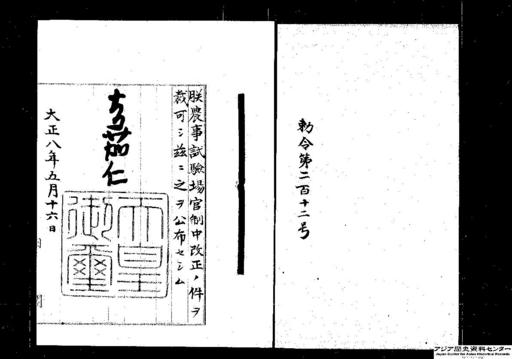 勅令第二百十二号
朕農事試験場官制中改正ノ件ヲ
裁可シ茲ニ之ヲ公布セシム
嘉仁
天皇
御璽
大正八年五月十六日
アジア歴史資料センター
Japan Center for Asian Historical Records